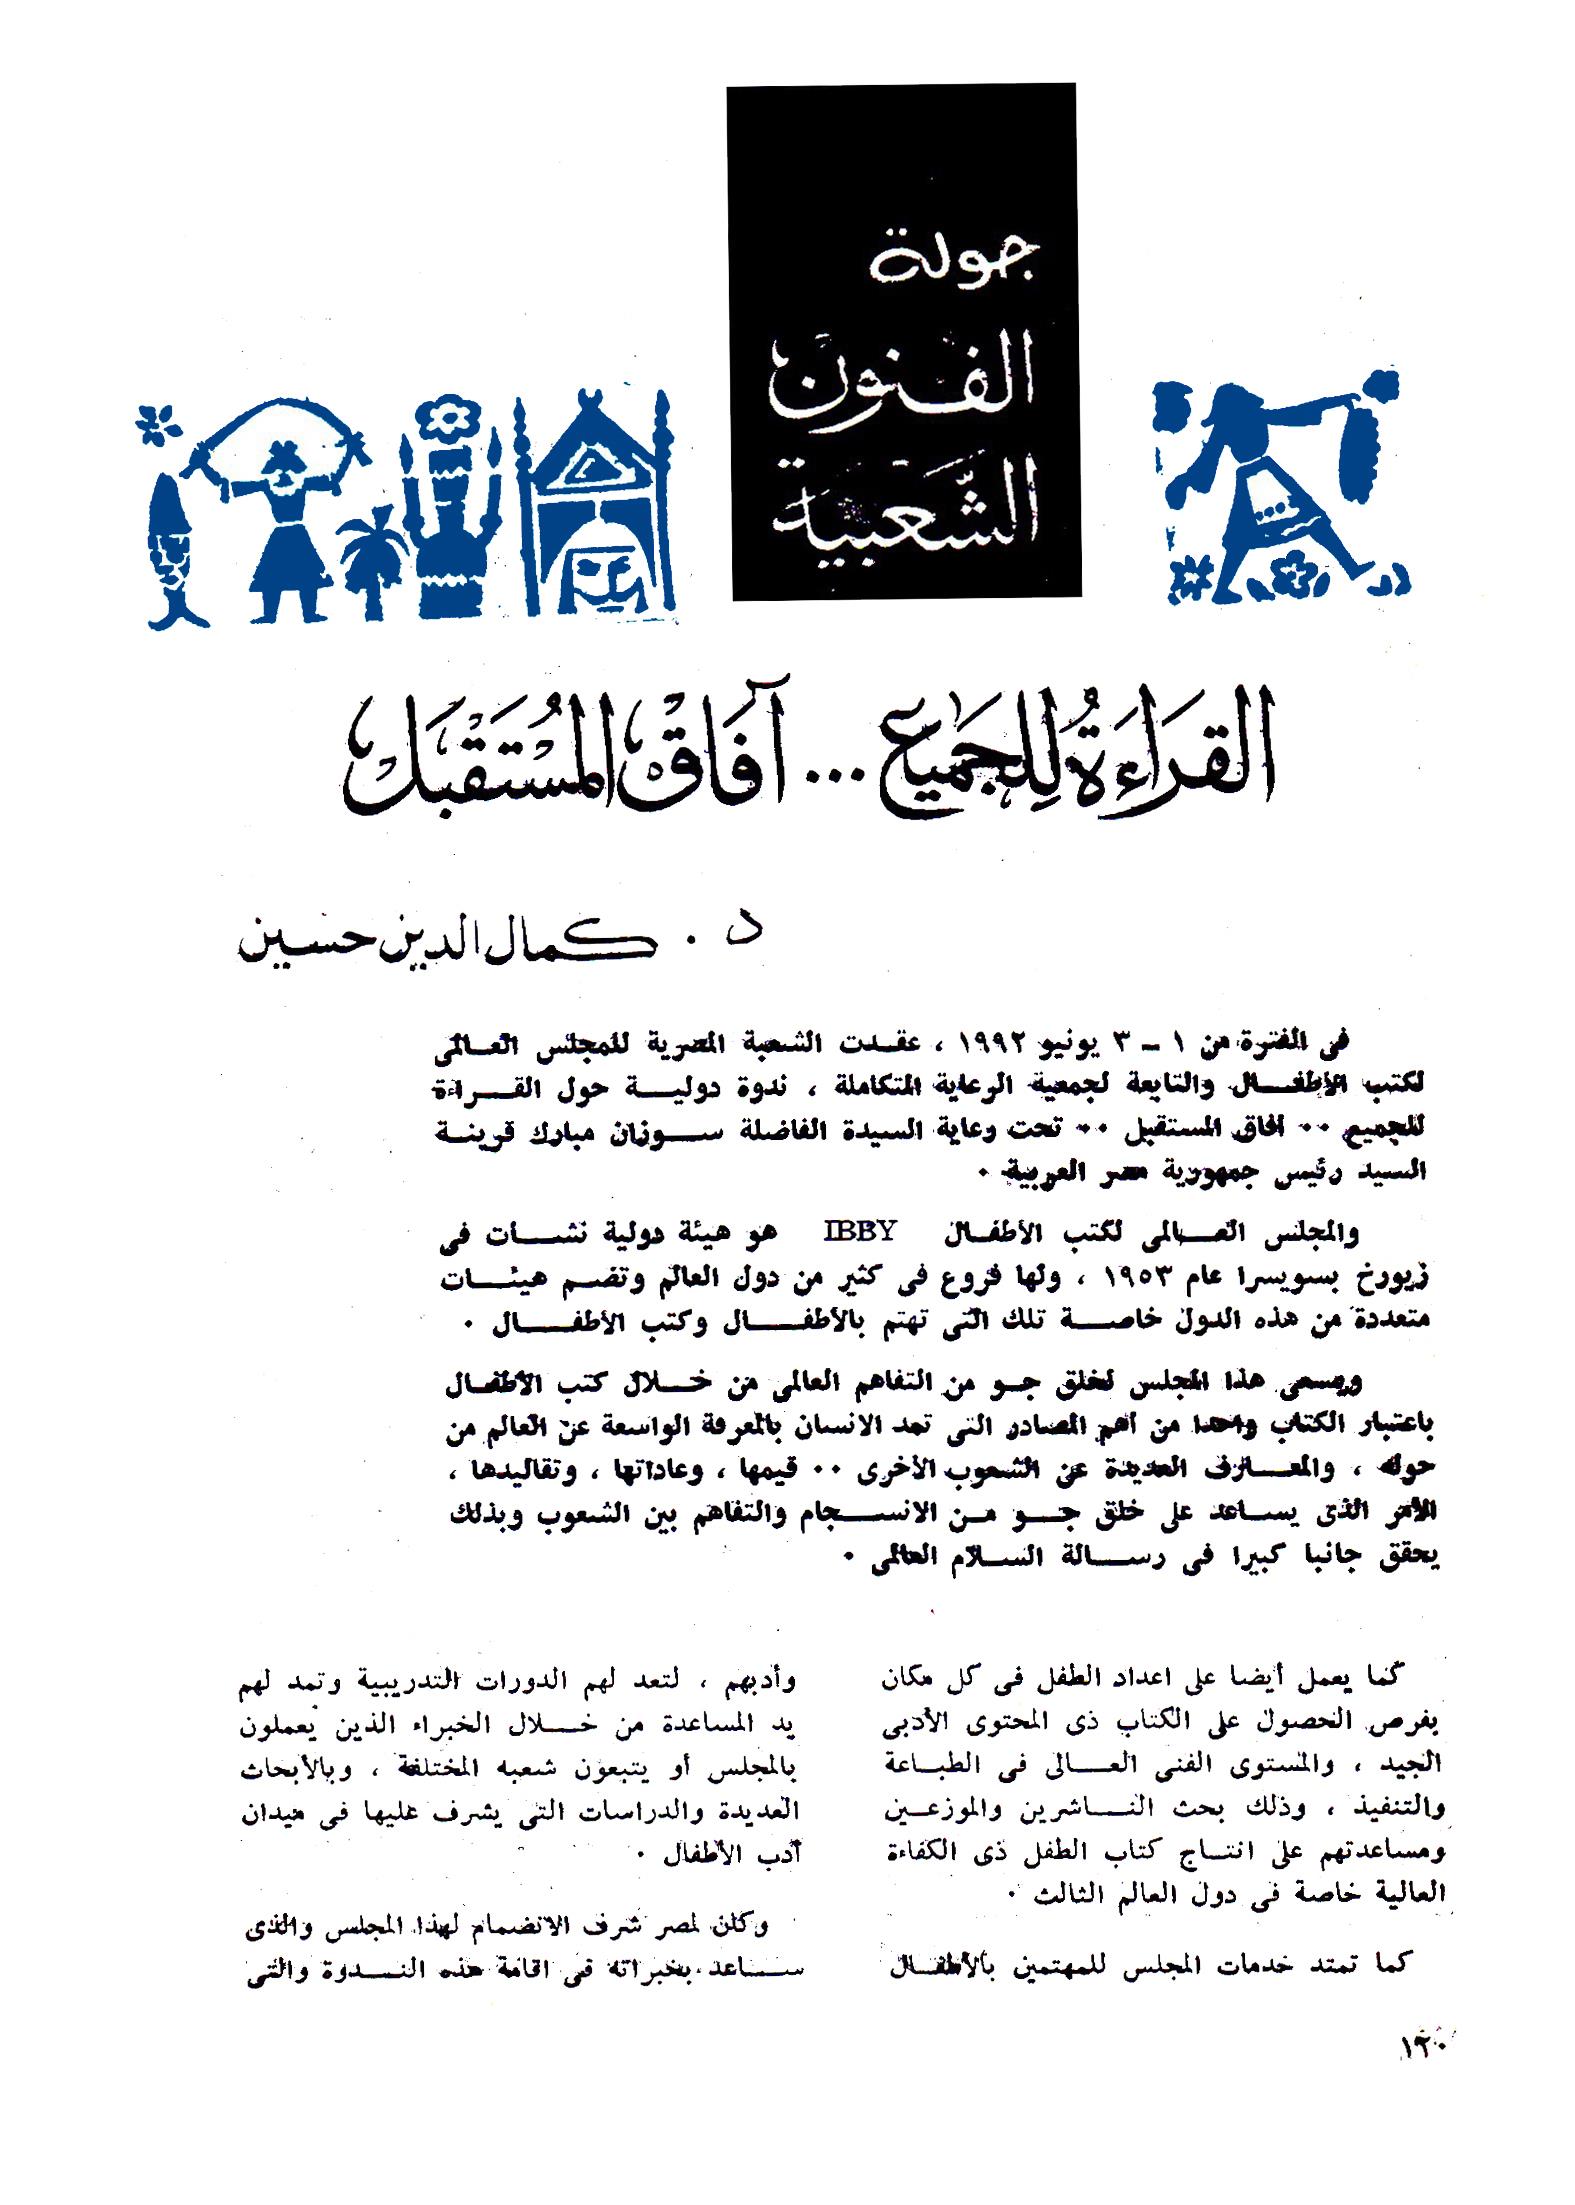 جولة
الفنون
الشعبية
القراءة للجميع ... آفاق المستقبل
د . كمال الدين حسين
فى الفترة من ١ - ٣ يونيو ١٩٩٢ ، عقدت الشعبة المصرية للمجلس العالمى
لكتب الأطفال والتابعة لجمعية الرعاية المتكاملة ، ندوة دولية حول القراءة
للجميع .. آفاق المستقبل .. تحت رعاية السيدة الفاضلة سوزان مبارك قرينة
السيد رئيس جمهورية مصر العربية .
والمجلس العالمى لكتب الأطفال IBBY هو هيئة دولية نشأت فى
زيورخ بسويسرا عام ١٩٥٣ ، ولها فروع فى كثير من دول العالم وتضم هيئات
متعددة من هذه الدول خاصة تلك التى تهتم بالأطفال وكتب الأطفال .
ويسعى هذا المجلس لخلق جو من التفاهم العالمى من خلال كتب الأطفال
باعتبار الكتاب واحدا من أهم المصادر التى تمد الانسان بالمعرفة الواسعة عن العالم من
حوله ، والمعارف العديدة عن الشعوب الأخرى .. قيمها ، وعاداتها ، وتقاليدها ،
الأمر الذى يساعد على خلق جو من الانسجام والتفاهم بين الشعوب وبذلك
يحقق جانبا كبيرا فى رسالة السلام العالمى .
كما يعمل أيضا على اعداد الطفل فى كل مكان
بفرص الحصول على الكتاب ذى المحتوى الأدبى
الجيد ، والمستوى الفنى العالى فى الطباعة
والتنفيذ ، وذلك بحث الناشرين والموزعين
ومساعدتهم على انتاج كتاب الطفل ذى الكفاءة
العالية خاصة فى دول العالم الثالث .
كما تمتد خدمات المجلس للمهتمين بالأطفال
وأدبهم ، لتعد لهم الدورات التدريبية وتمد لهم
يد المساعدة من خلال الخبراء الذين يعملون
بالمجلس أو يتبعون شعبه المختلفة ، وبالأبحاث
العديدة والدراسات التى يشرف عليها فى ميدان
أدب الأطفال .
وكان لمصر شرف الانضمام لهذا المجلس والذى
ساعد بخبراته فى اقامة هذه الندوة والتى
١٢٠